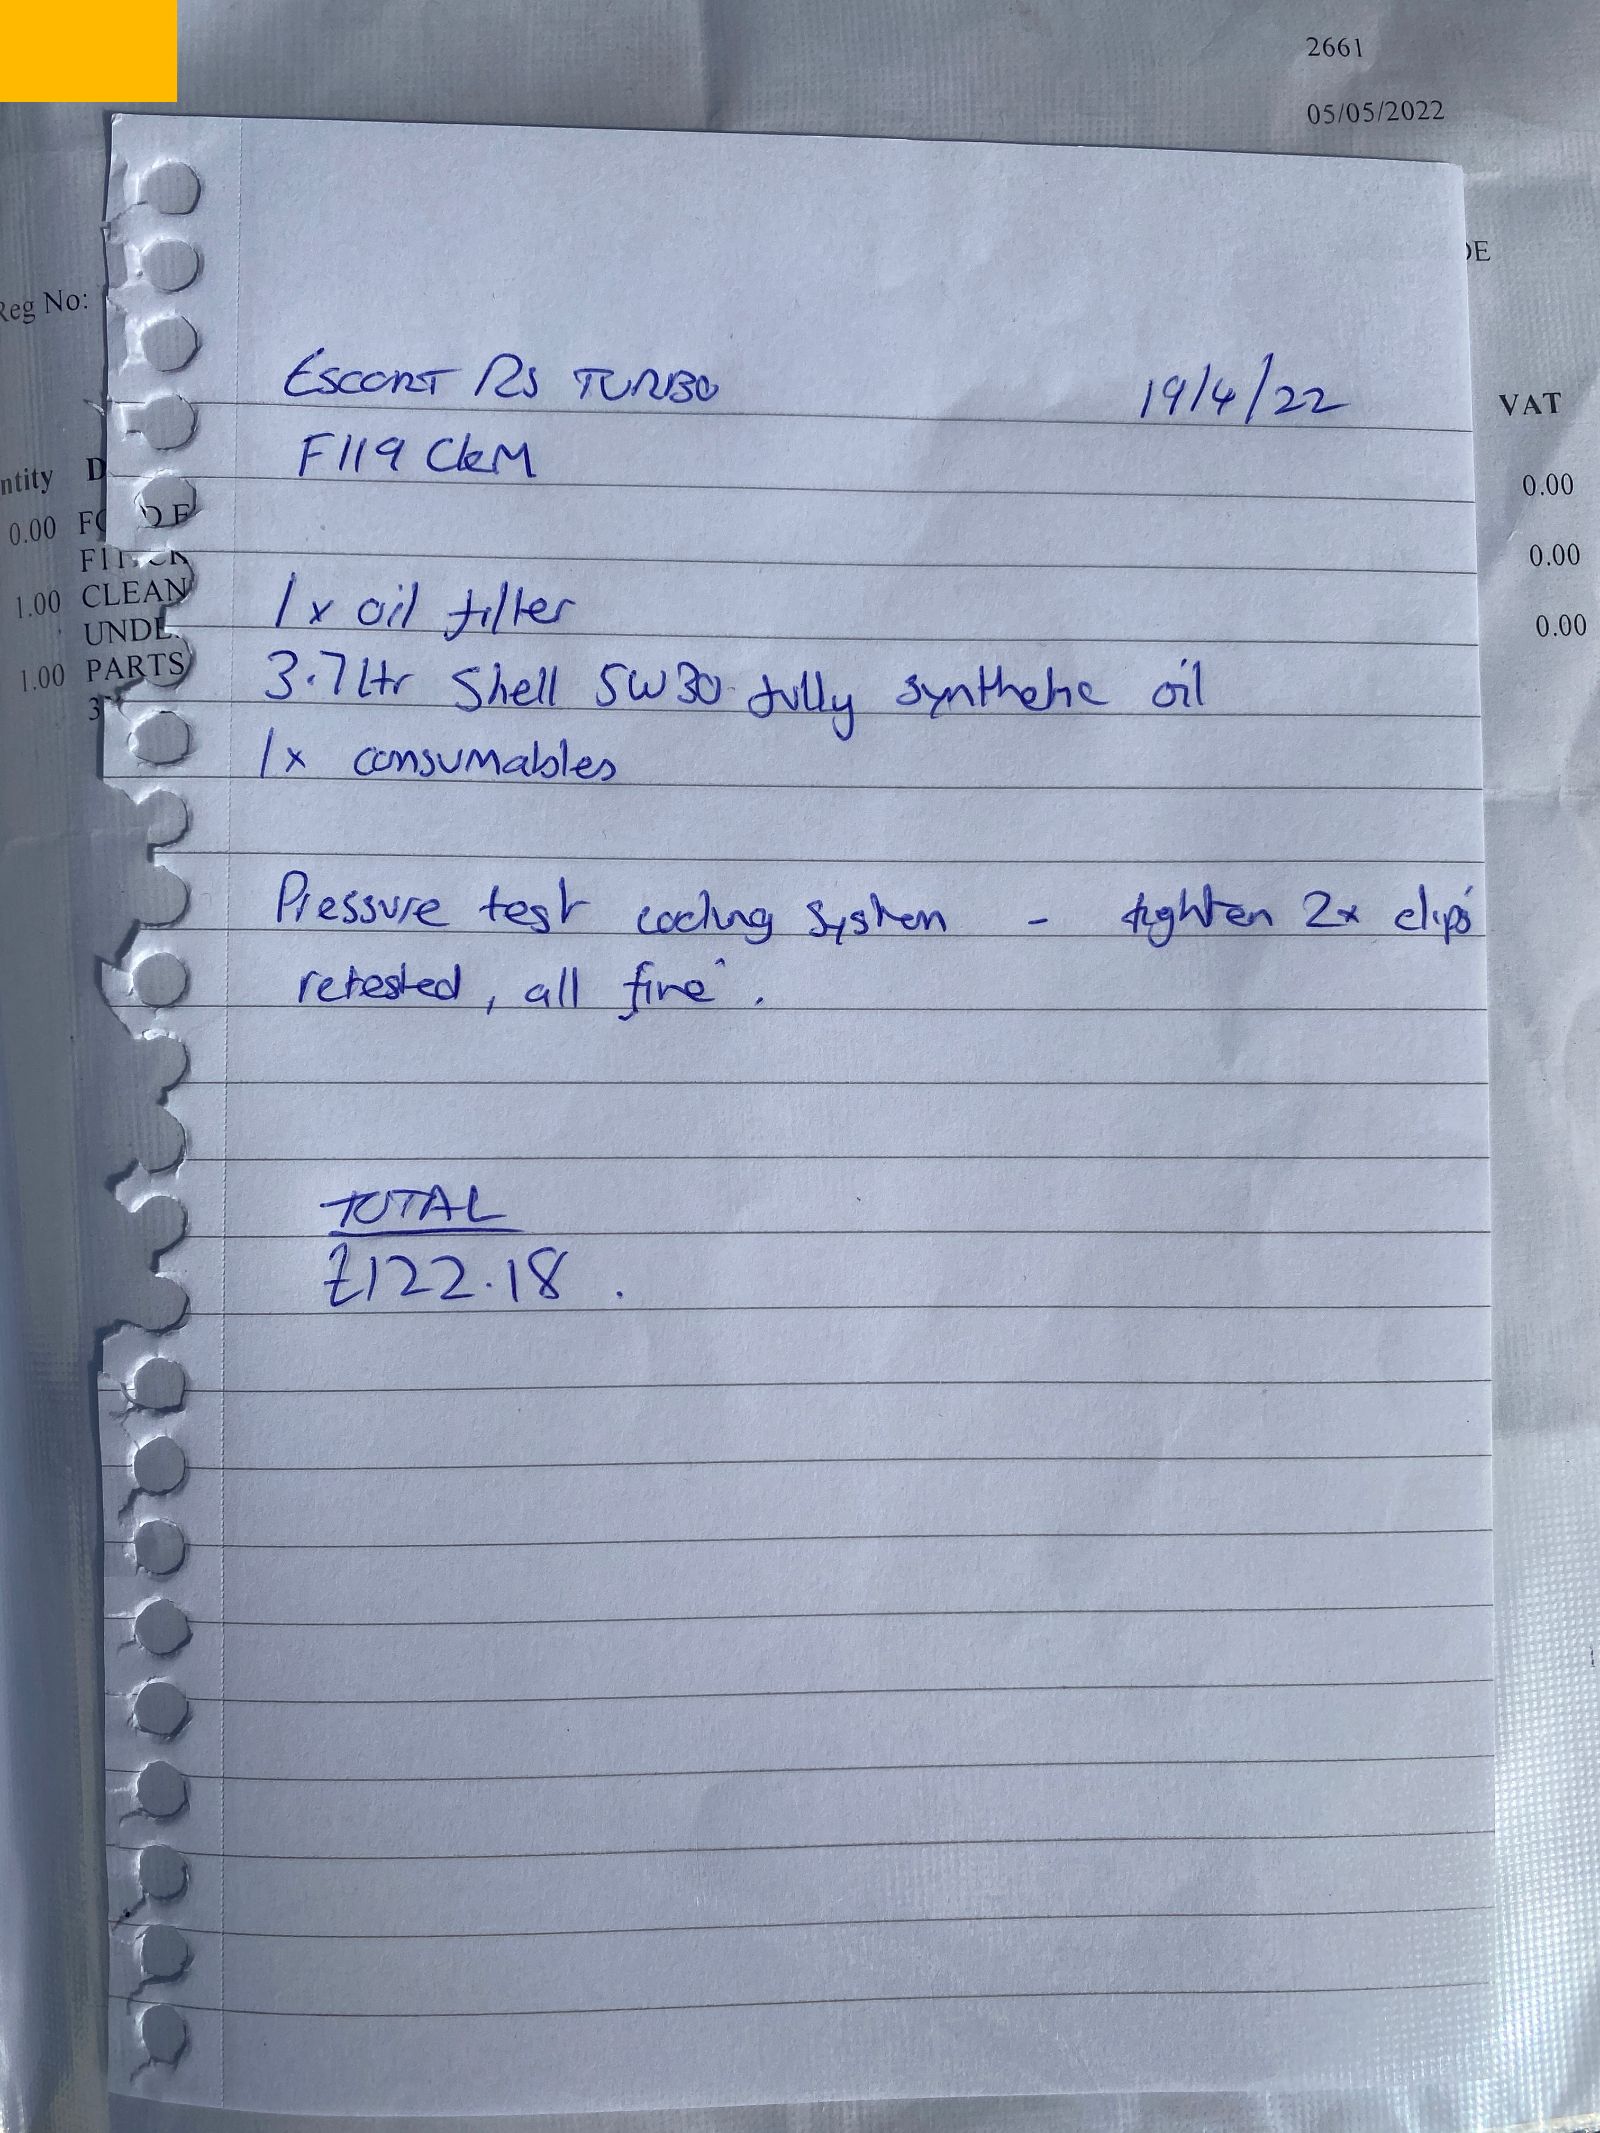 2661
05/05/2022
Reg No:
ESCORT RS TURBO 19/4/22
F119 CkM
VAT
0.00
0.00
0.00
0.00
1.00 CLEAN
1.00 PARTS
1x oil filter
3.7 ltr Shell 5W30 fully synthetic oil
1x consumables
Pressure test cooling system - tighten 2x clips
retested, all fine.
TOTAL
£122.18.